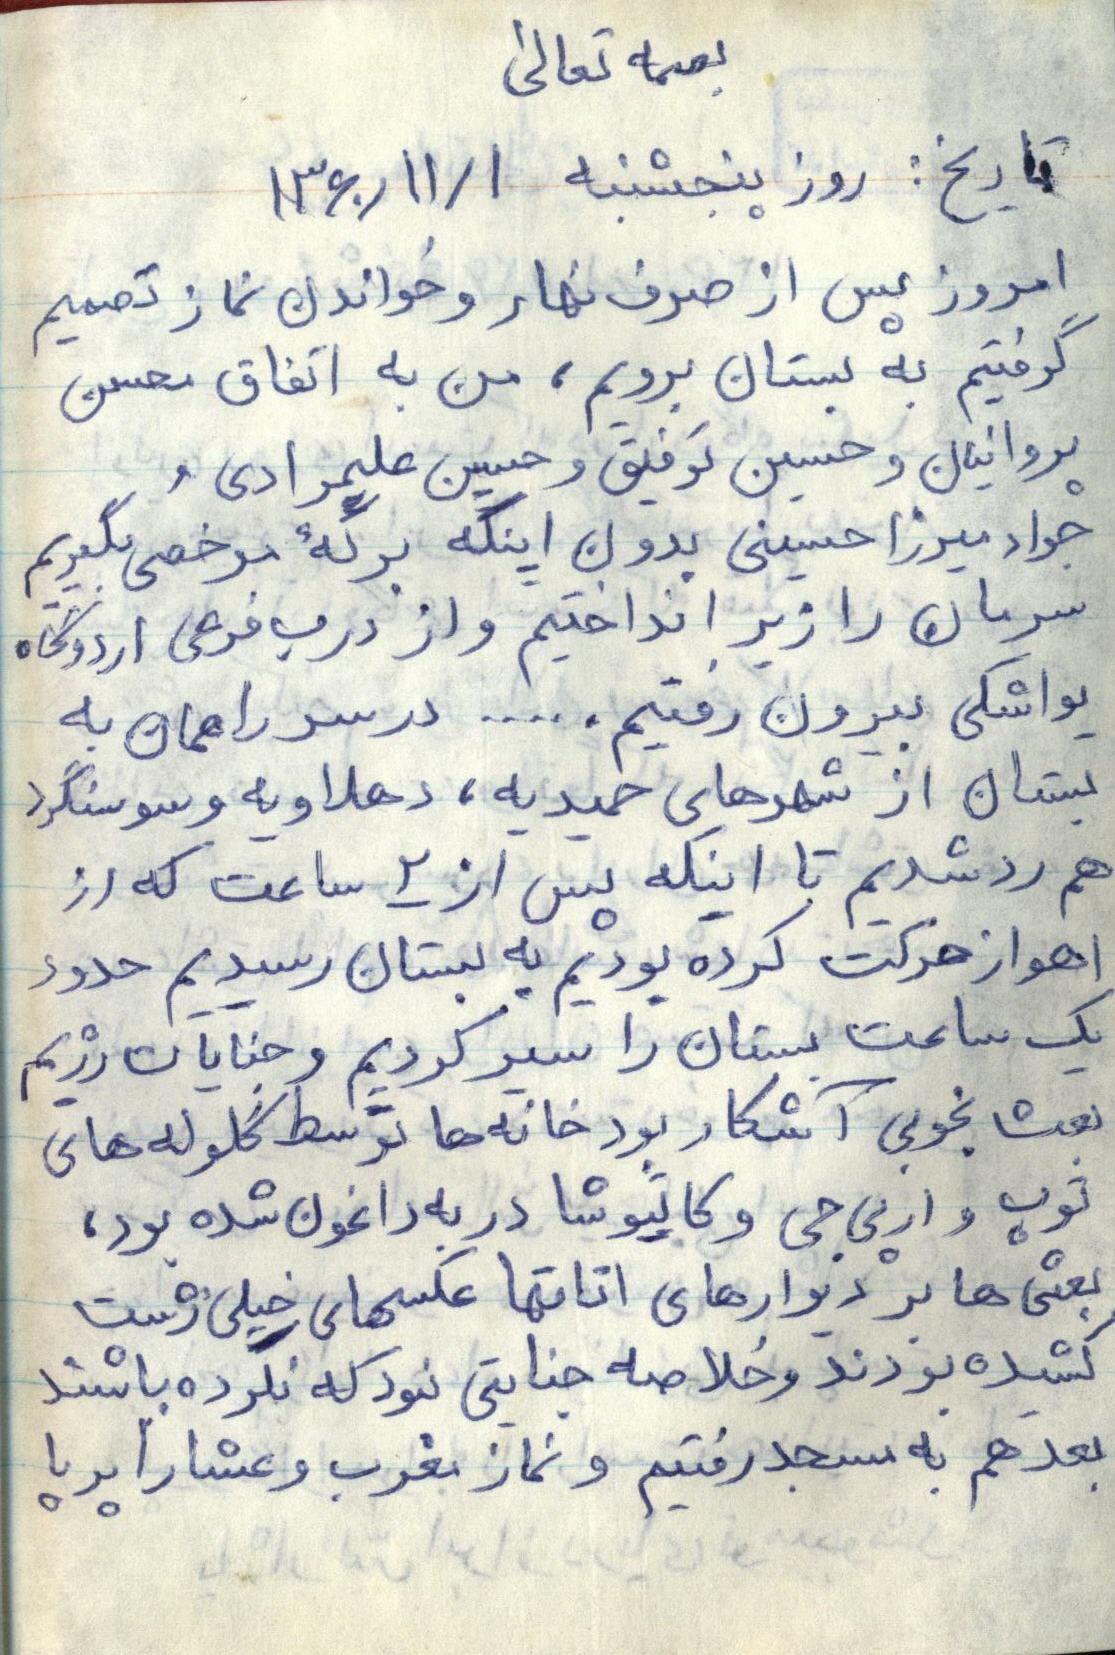 بسمه تعالی
تاریخ: روز پنجشنبه ۱۳۶۰/۱۱/۱
امروز پس از صرف نهار و خواندن نماز تصمیم
گرفتیم به بستان برویم، من به اتفاق محسن
پروانیان و حسین توفیق و حسین علیمرادی و
جواد میرزا حسینی بدون اینکه برگهٔ مرخصی بگیریم
سرمان را زیر انداختیم و از درب فرعی اردوگاه
یواشکی بیرون رفتیم ..... در سر راهمان به
بستان از شهرهای حمیدیه، دهلاویه و سوسنگرد
هم رد شدیم تا اینکه پس از ۲ ساعت که از
اهواز حرکت کرده بودیم به بستان رسیدیم حدود
یک ساعت بستان را سیر کردیم و جنایات رژیم
بعث بخوبی آشکار بود خانه ها توسط گلوله های
توپ و ارپی جی و کاتیوشا در به داغون شده بود،
بعثی ها بر دیوارهای اتاقها عکسهای خیلی زشت
کشیده بودند و خلاصه جنایتی نبود که نکرده باشند
بعد هم به مسجد رفتیم و نماز مغرب و عشا را بر پا